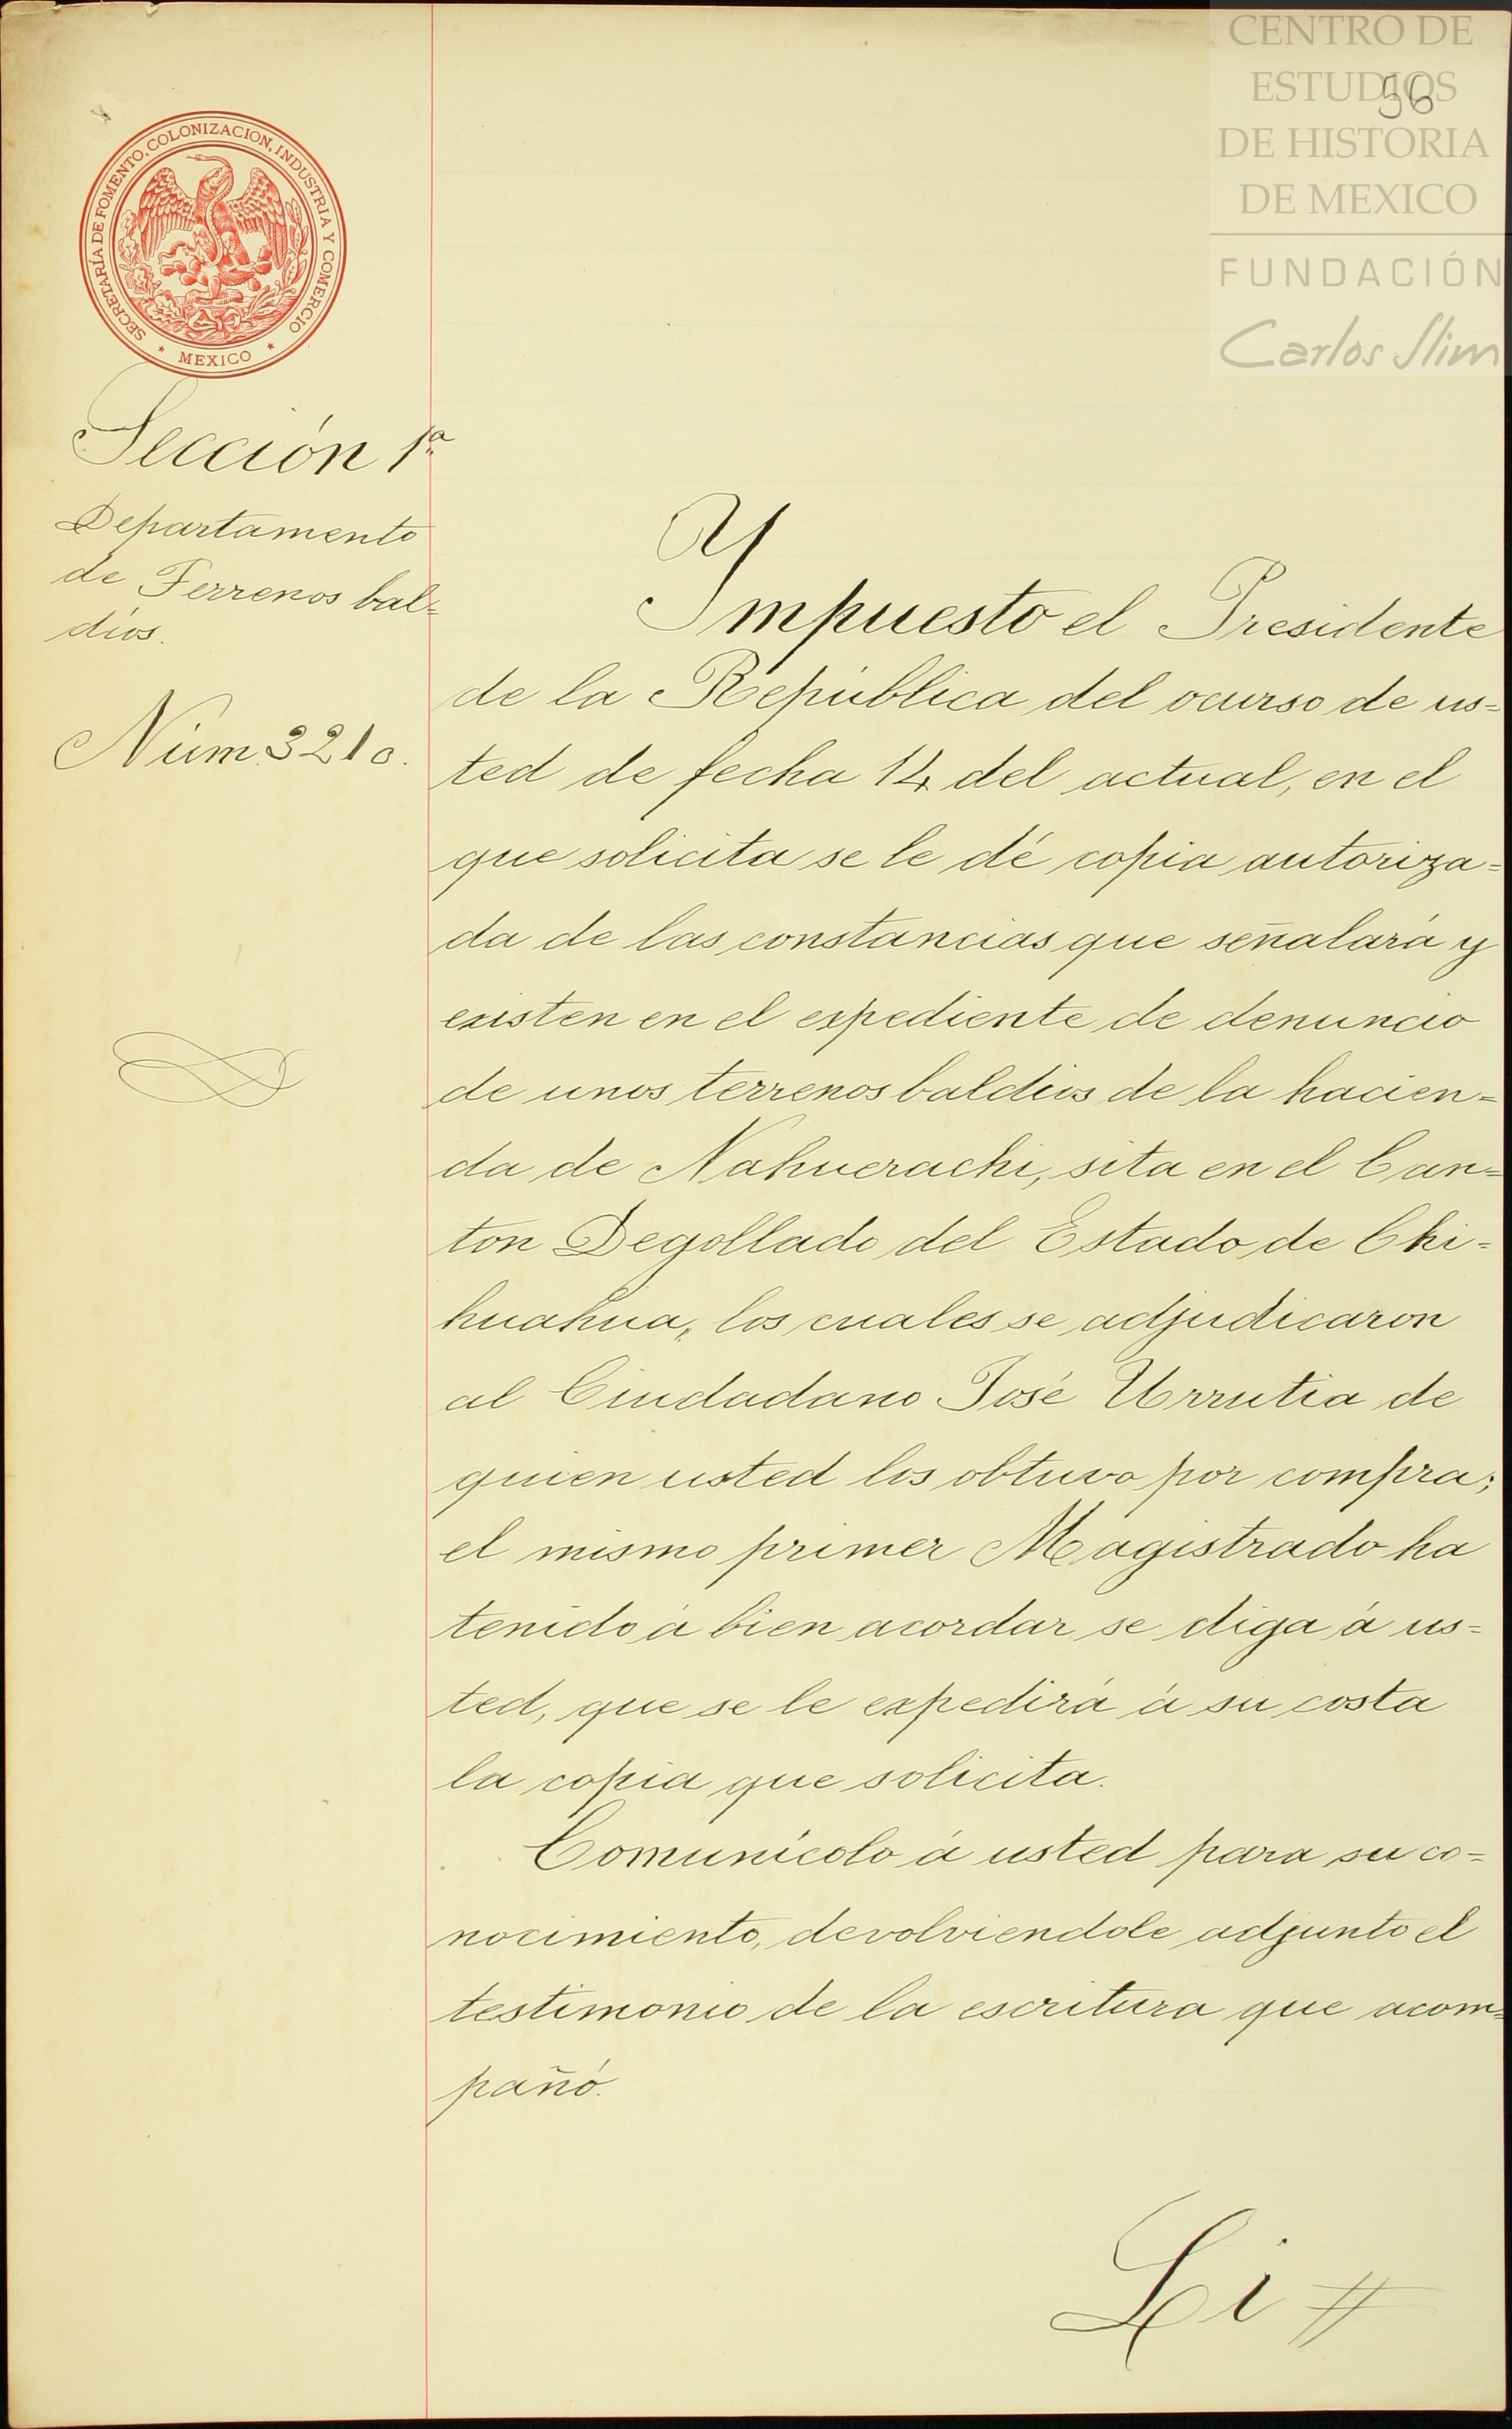 CENTRO DE
ESTUDIOS
DE HISTORIA
DE MEXICO
FUNDACIÓN
Carlos Slim
56
SECRETARÍA DE FOMENTO, COLONIZACION, INDUSTRIA Y COMERCIO
* MEXICO *
Sección 1ª
Departamento
de Terrenos bal=
díos.
Núm. 3210.
Impuesto el Presidente
de la República del ocurso de us=
ted de fecha 14 del actual, en el
que solicita se le dé copia autoriza=
da de las constancias que señalará y
existen en el expediente de denuncio
de unos terrenos baldios de la hacien=
da de Nahuerachi, sita en el Can=
ton Degollado del Estado de Chi=
huahua, los cuales se adjudicaron
al Ciudadano José Urrutia de
quien usted los obtuvo por compra;
el mismo primer Magistrado ha
tenido á bien acordar se diga á us=
ted, que se le expedirá á su costa
la copia que solicita.
Comunícolo á usted para su co=
nocimiento, devolviendole adjunto el
testimonio de la escritura que acom=
pañó.
Li